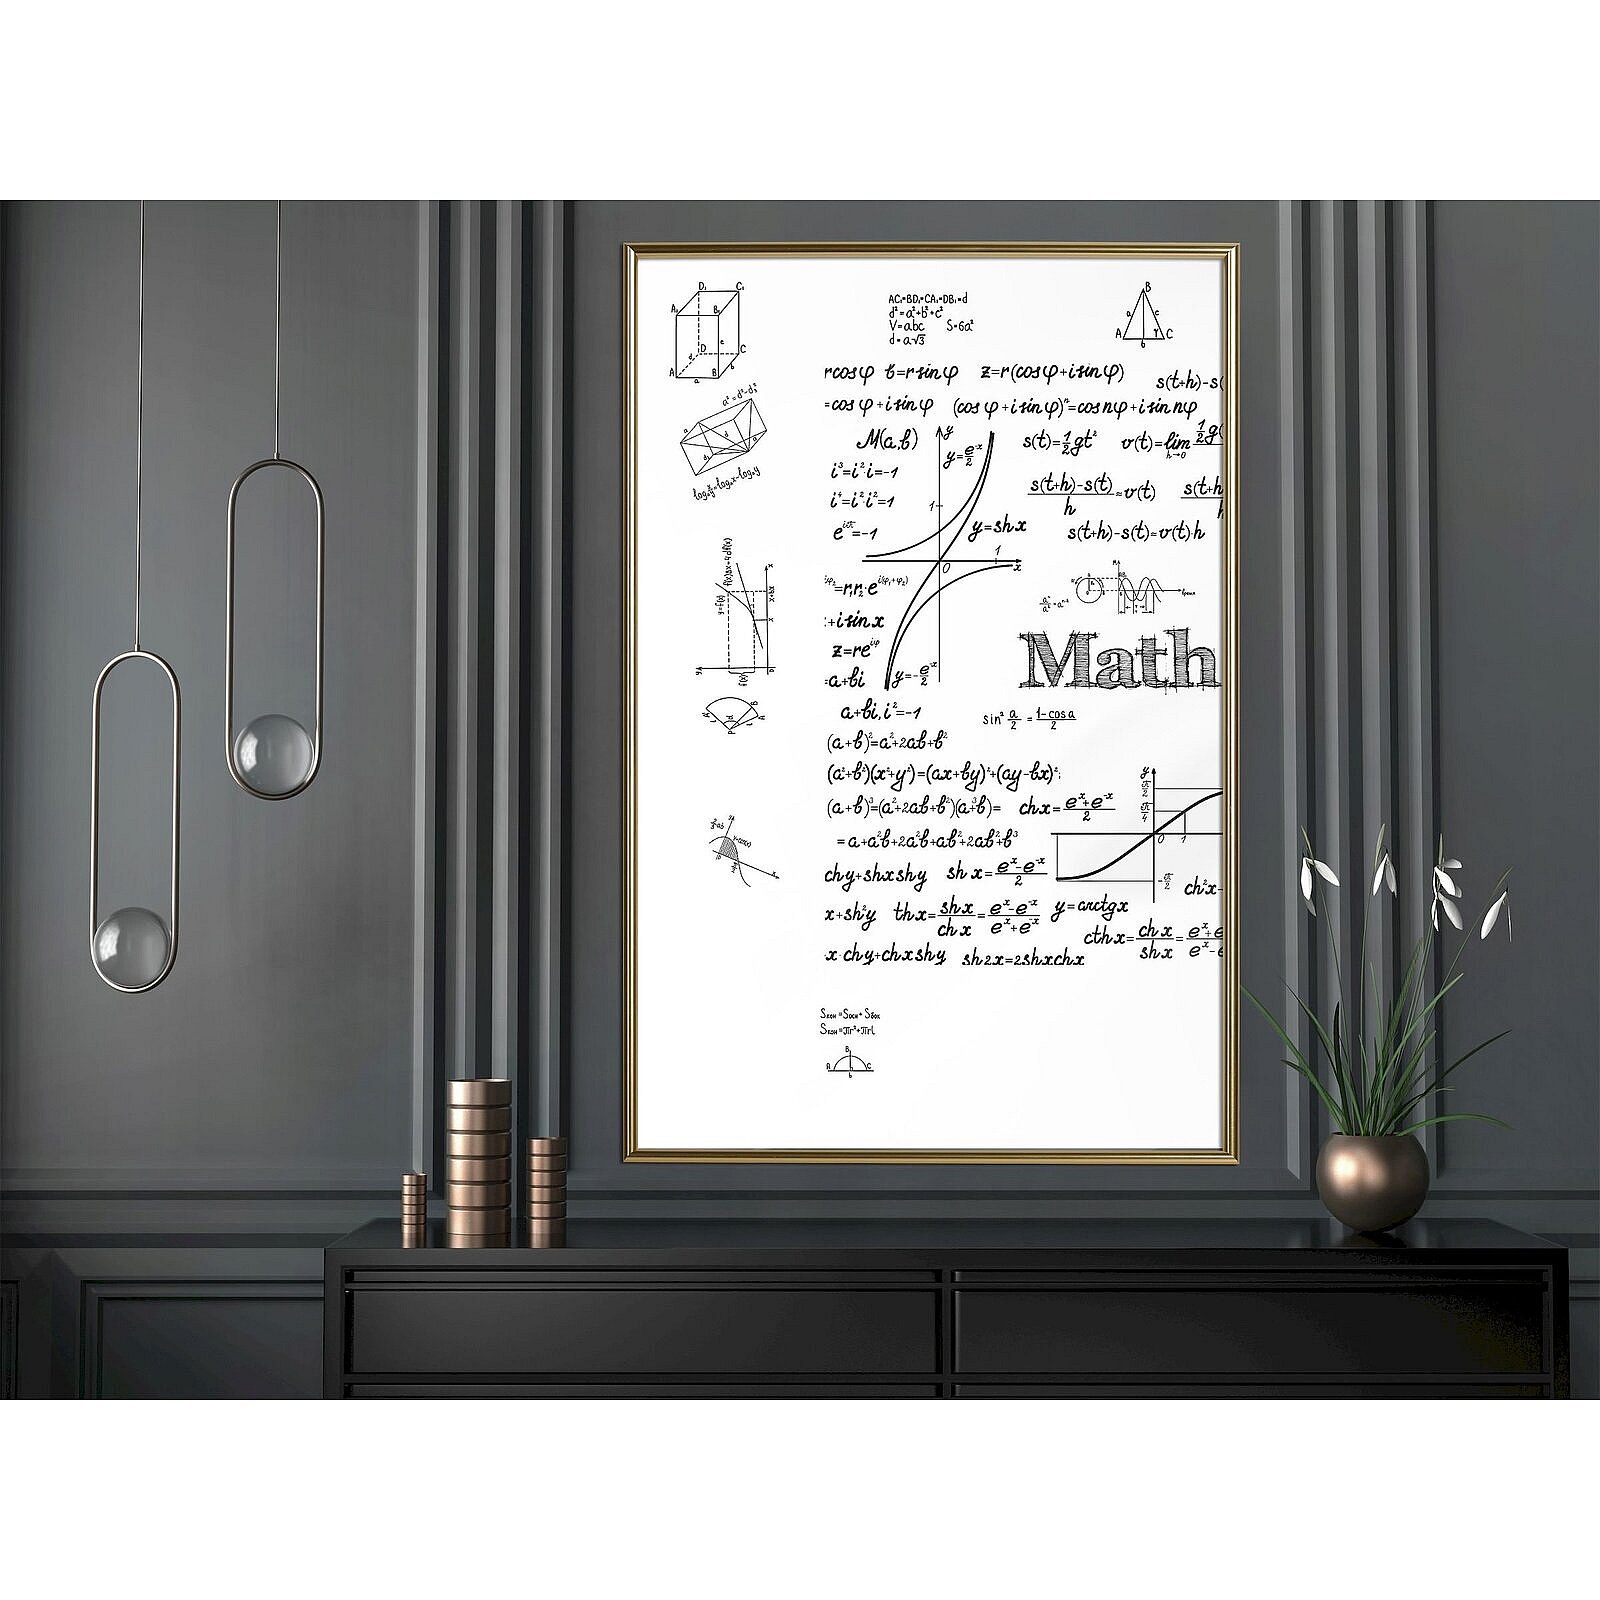 D₁ C₁
A₁ B₁
D C
A B
a b c d
AC₁=BD₁=CA₁=DB₁=d
d²=a²+b²+c²
V=abc S=6a²
d=a√3
B
a c
A γ C
b
rcosφ b=rsinφ z=r(cosφ+isinφ)
s(t+h)-s(
=cosφ+isinφ (cosφ+isinφ)ⁿ=cosnφ+isin nφ
M(a,b)
s(t)=1/2gt² v(t)=lim h→0 1/2g(
i³=i²·i=-1
i⁴=i²·i²=1
e^iπ=-1
y=e^x/2
y
1
y=shx
0 1 x
s(t+h)-s(t)/h≈v(t) s(t+h
h
s(t+h)-s(t)≈v(t)·h
=r₁r₂·e^i(φ₁+φ₂)
+isinx
z=re^iφ
=a+bi
y=-e^-x/2
Math
a+bi, i²=-1
sin² a/2 = 1-cosa/2
(a+b)²=a²+2ab+b²
(a²+b²)(x²+y²)=(ax+by)²+(ay-bx)²;
(a+b)³=(a²+2ab+b²)(a+b)= chx=e^x+e^-x/2
y
π/2
π/4
0 1
-π/2
=a+a²b+2a²b+ab²+2ab²+b³
chy+shxshy shx=e^x-e^-x/2
ch²x-
x+sh²y thx=shx/chx=e^x-e^-x/e^x+e^-x y=arctgx
cthx=chx/shx=e^x+e/e^x-e
x chy+chxshy sh2x=2shxchx
Sкон=Sосн+Sбок
Sкон=πr²+πrl
B
A C
b